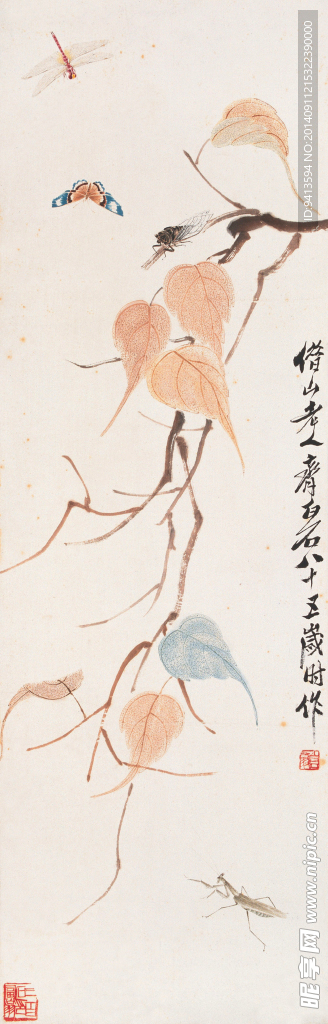 ID:9413594 NO:20140911215322390000
借山老人齊白石八十五歲时作
昵享网 www.nipic.cn